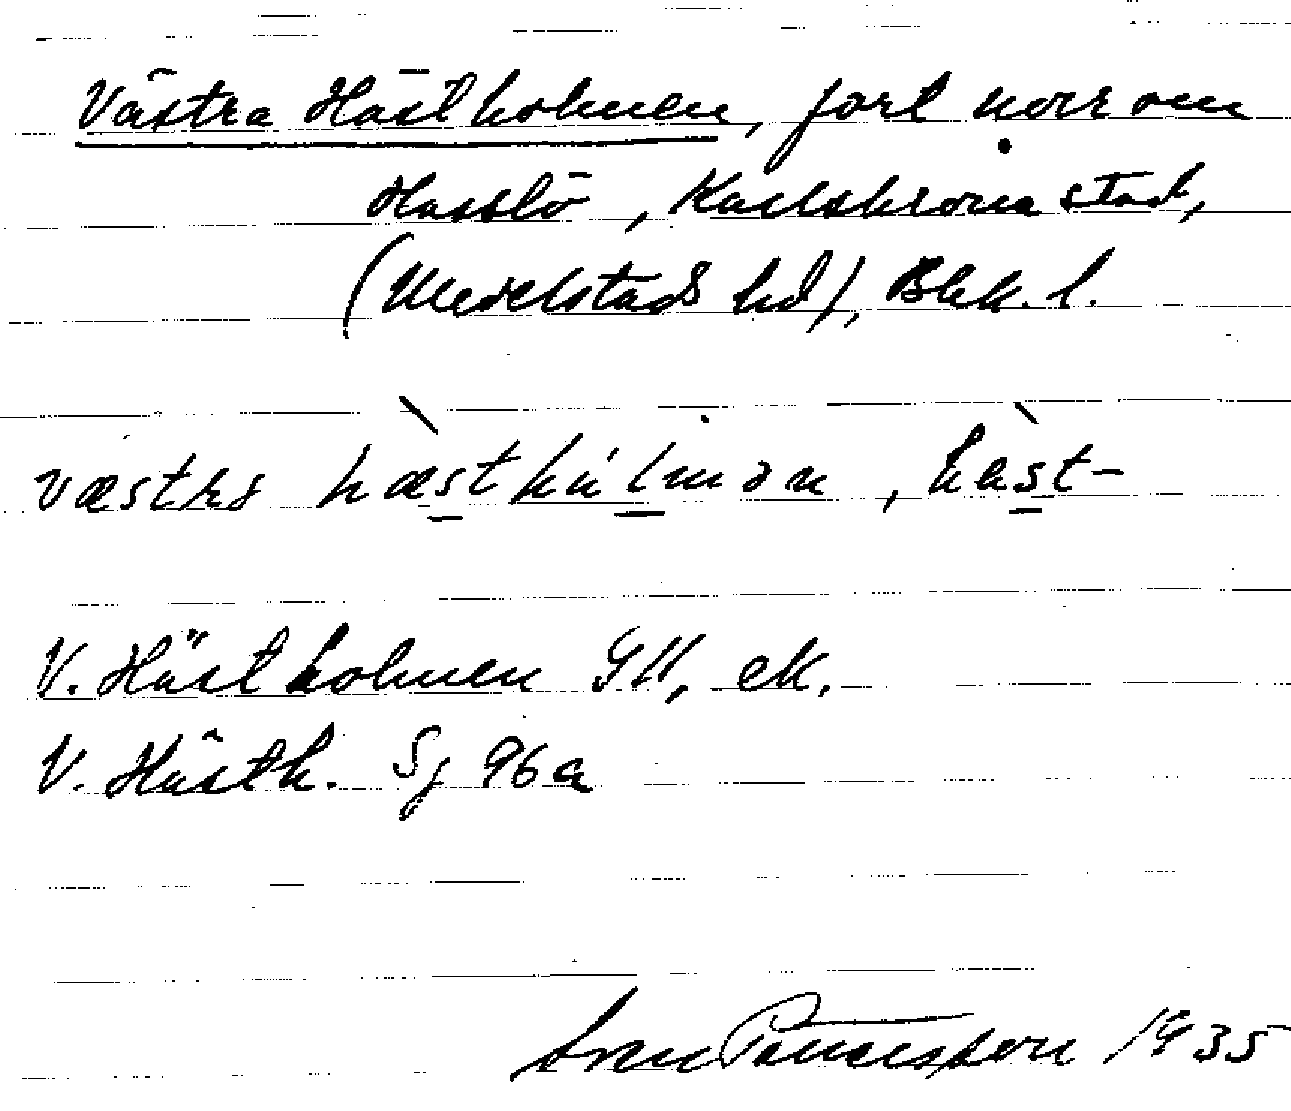 Västra Hästholmen, fort norr om
Hasslö, Karlskrona stad,
(Medelstads hd), Blek. l.
væstrɐ hæ̀sthúlmən, hæ̀st-
V. Hästholmen GK, ek.
V. Hästh. Sj 96a
Sven Benson 1935